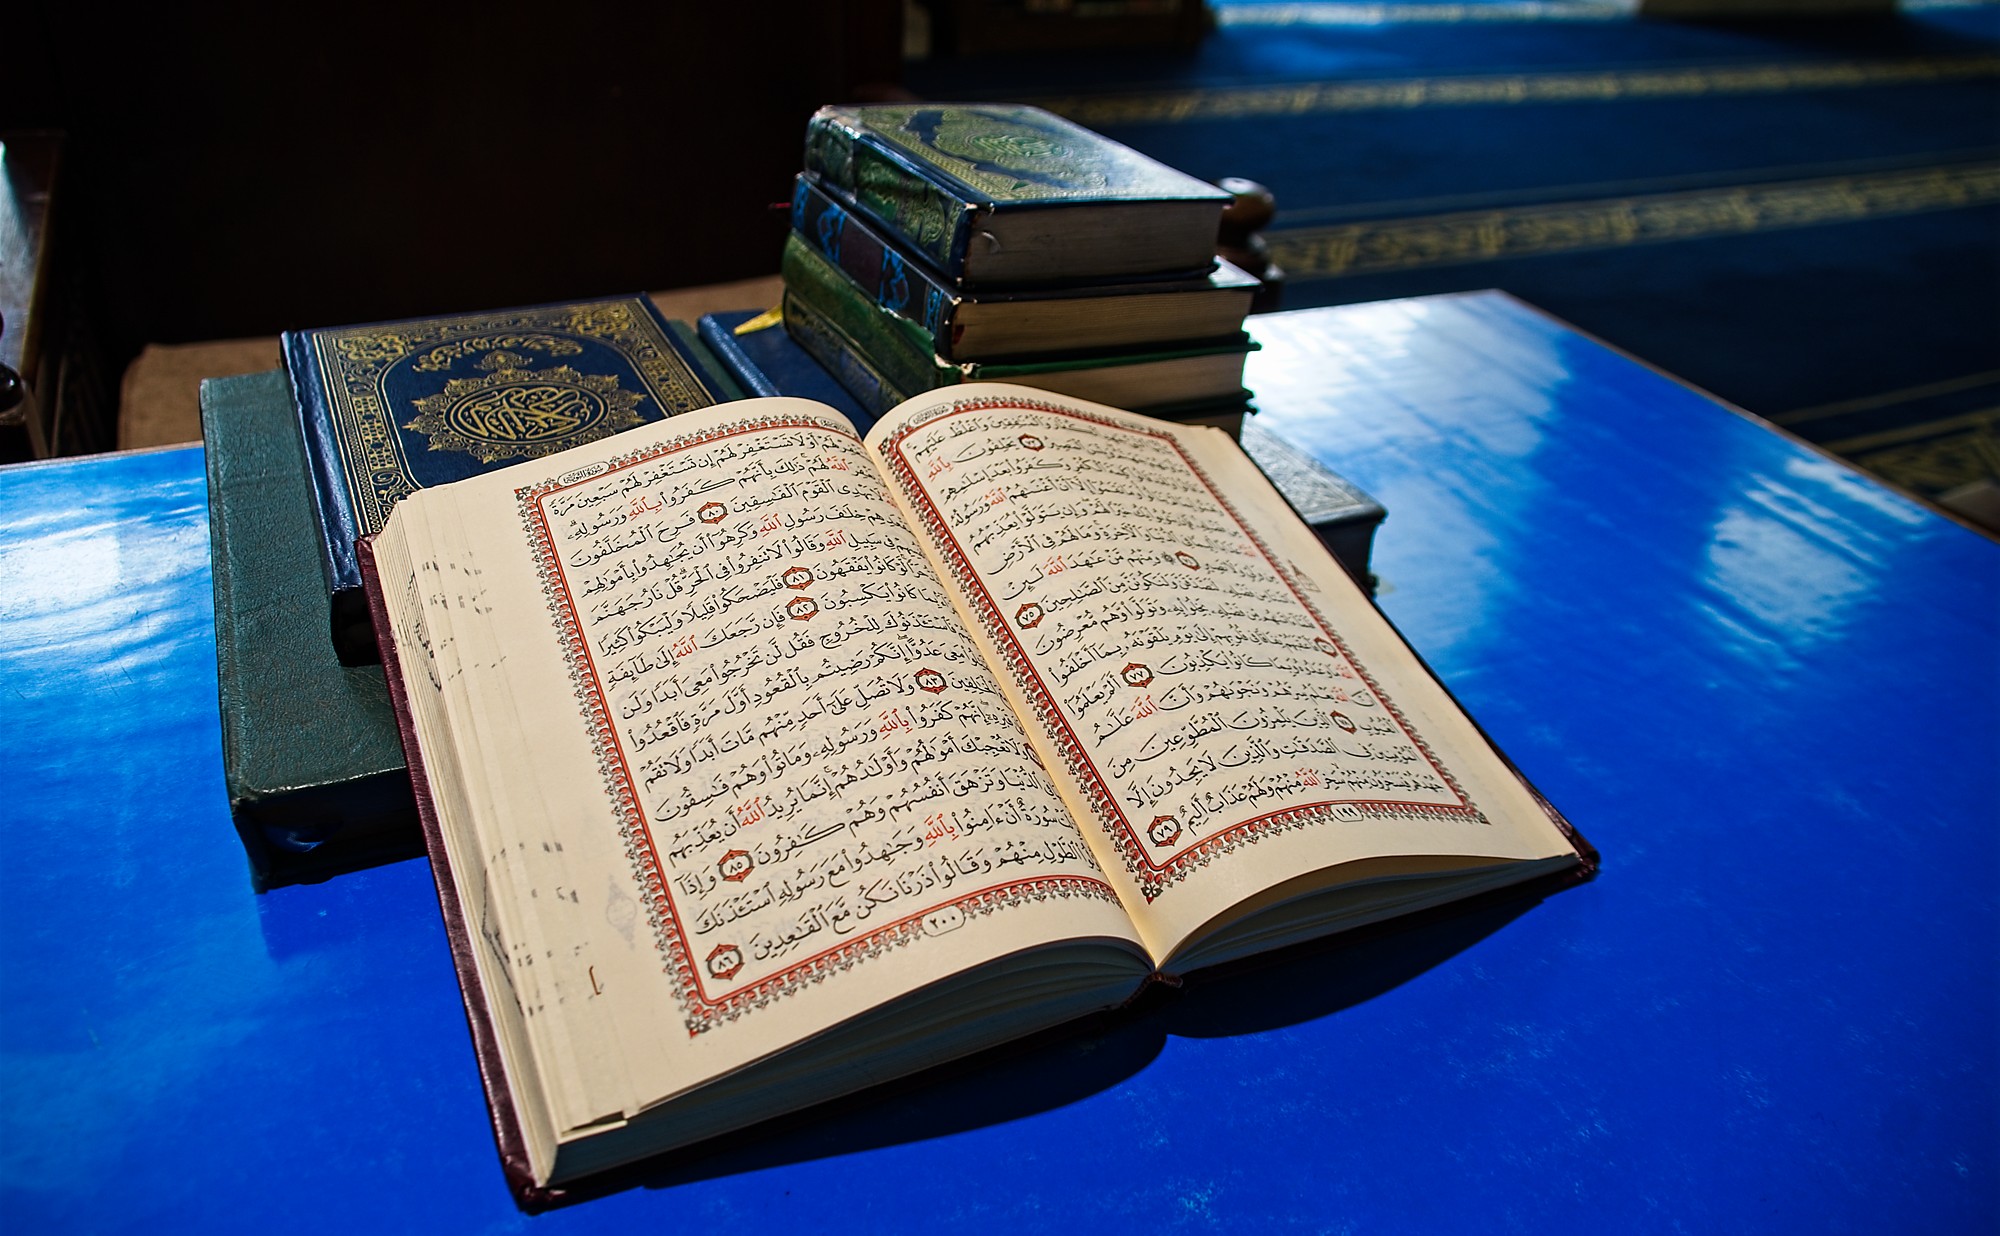 سورة التوبة
ٱلْكُفَّارَ وَٱلْمُنَٰفِقِينَ وَٱغْلُظْ عَلَيْهِمْ
ٱلْمَصِيرُ ٧٣ يَحْلِفُونَ بِٱللَّهِ
ٱلْكُفْرِ وَكَفَرُوا۟ بَعْدَ إِسْلَٰمِهِمْ
إِلَّآ أَنْ أَغْنَىٰهُمُ ٱللَّهُ وَرَسُولُهُۥ
خَيْرًا لَّهُمْ وَإِن يَتَوَلَّوْا۟ يُعَذِّبْهُمُ
فِى ٱلدُّنْيَا وَٱلْءَاخِرَةِ وَمَا لَهُمْ فِى ٱلْأَرْضِ
٧٤ وَمِنْهُم مَّنْ عَٰهَدَ ٱللَّهَ لَئِنْ
فَضْلِهِۦ لَنَصَّدَّقَنَّ وَلَنَكُونَنَّ مِنَ ٱلصَّٰلِحِينَ ٧٥
مِّن فَضْلِهِۦ بَخِلُوا۟ بِهِۦ وَتَوَلَّوا۟ وَّهُم مُّعْرِضُونَ
٧٦ فِى قُلُوبِهِمْ إِلَىٰ يَوْمِ يَلْقَوْنَهُۥ بِمَآ أَخْلَفُوا۟
ٱللَّهَ مَا وَعَدُوهُ وَبِمَا كَانُوا۟ يَكْذِبُونَ ٧٧ أَلَمْ يَعْلَمُوٓا۟
أَنَّ ٱللَّهَ يَعْلَمُ سِرَّهُمْ وَنَجْوَىٰهُمْ وَأَنَّ ٱللَّهَ عَلَّٰمُ
ٱلْغُيُوبِ ٧٨ ٱلَّذِينَ يَلْمِزُونَ ٱلْمُطَّوِّعِينَ مِنَ
ٱلْمُؤْمِنِينَ فِى ٱلصَّدَقَٰتِ وَٱلَّذِينَ لَا يَجِدُونَ إِلَّا
جُهْدَهُمْ فَيَسْخَرُونَ مِنْهُمْ سَخِرَ ٱللَّهُ مِنْهُمْ وَلَهُمْ عَذَابٌ أَلِيمٌ ٧٩
١٩٩
سورة التوبة
لَهُمْ أَوْ لَا تَسْتَغْفِرْ لَهُمْ إِن تَسْتَغْفِرْ لَهُمْ سَبْعِينَ مَرَّةً
ٱللَّهُ لَهُمْ ذَٰلِكَ بِأَنَّهُمْ كَفَرُوا۟ بِٱللَّهِ وَرَسُولِهِۦ
يَهْدِى ٱلْقَوْمَ ٱلْفَٰسِقِينَ ٨٠ فَرِحَ ٱلْمُخَلَّفُونَ
خِلَٰفَ رَسُولِ ٱللَّهِ وَكَرِهُوٓا۟ أَن يُجَٰهِدُوا۟ بِأَمْوَٰلِهِمْ
فِى سَبِيلِ ٱللَّهِ وَقَالُوا۟ لَا تَنفِرُوا۟ فِى ٱلْحَرِّ قُلْ نَارُ جَهَنَّمَ
لَّوْ كَانُوا۟ يَفْقَهُونَ ٨١ فَلْيَضْحَكُوا۟ قَلِيلًا وَلْيَبْكُوا۟ كَثِيرًا
كَانُوا۟ يَكْسِبُونَ ٨٢ فَإِن رَّجَعَكَ ٱللَّهُ إِلَىٰ طَآئِفَةٍ
فَٱسْتَـْٔذَنُوكَ لِلْخُرُوجِ فَقُل لَّن تَخْرُجُوا۟ مَعِىَ أَبَدًا وَلَن
مَعِىَ عَدُوًّا إِنَّكُمْ رَضِيتُم بِٱلْقُعُودِ أَوَّلَ مَرَّةٍ فَٱقْعُدُوا۟
ٱلْخَٰلِفِينَ ٨٣ وَلَا تُصَلِّ عَلَىٰٓ أَحَدٍ مِّنْهُم مَّاتَ أَبَدًا وَلَا تَقُمْ
إِنَّهُمْ كَفَرُوا۟ بِٱللَّهِ وَرَسُولِهِۦ وَمَاتُوا۟ وَهُمْ فَٰسِقُونَ
وَلَا تُعْجِبْكَ أَمْوَٰلُهُمْ وَأَوْلَٰدُهُمْ إِنَّمَا يُرِيدُ ٱللَّهُ أَن يُعَذِّبَهُم
ٱلدُّنْيَا وَتَزْهَقَ أَنفُسُهُمْ وَهُمْ كَٰفِرُونَ ٨٥ وَإِذَآ
سُورَةٌ أَنْ ءَامِنُوا۟ بِٱللَّهِ وَجَٰهِدُوا۟ مَعَ رَسُولِهِ ٱسْتَـْٔذَنَكَ
ٱلطَّوْلِ مِنْهُمْ وَقَالُوا۟ ذَرْنَا نَكُن مَّعَ ٱلْقَٰعِدِينَ ٨٦
٢٠٠